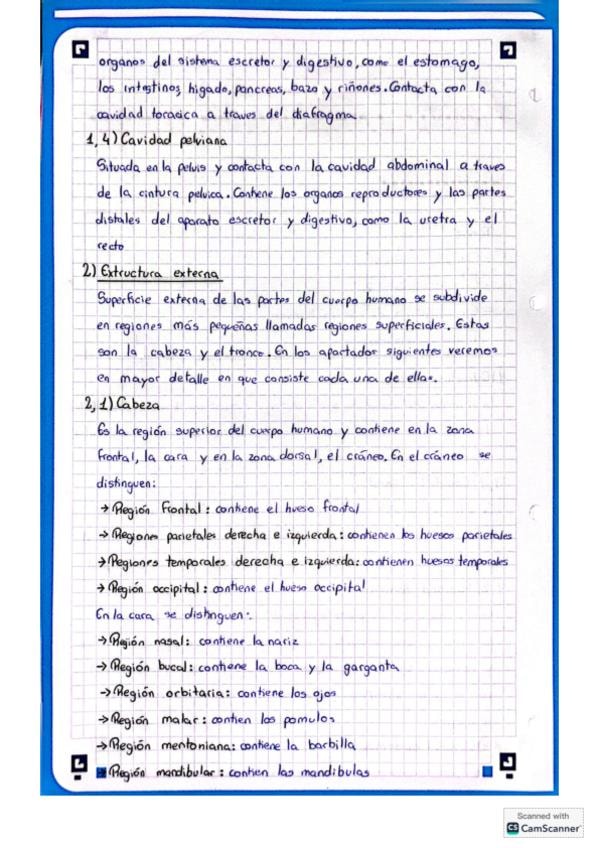 organos del sistema escretor y digestivo, como el estomago,
los intestinos, higado, pancreas, bazo y riñones. Contacta con la
cavidad toracica a traves del diafragma
1,4) Cavidad pelviana
Situada en la pelvis y contacta con la cavidad abdominal a traves
de la cintura pelvica. Contiene los organos reproductores y las partes
distales del aparato escretor y digestivo, como la uretra y el
recto
2) Extructura externa
Superficie externa de las partes del cuerpo humano se subdivide
en regiones más pequeñas llamadas regiones superficiales. Estas
son la cabeza y el tronco. En los apartados siguientes veremos
en mayor detalle en que consiste cada una de ellas.
2,1) Cabeza
Es la región superior del cuerpo humano y contiene en la zona
frontal, la cara y en la zona dorsal, el cráneo. En el cráneo se
distinguen:
→ Región Frontal: contiene el hueso frontal
→ Regiones parietales derecha e izquierda: contienen los huesos parietales
→ Regiones temporales derecha e izquierda: contienen huesos temporales
→ Región occipital: contiene el hueso occipital
En la cara se distinguen:
→ Región nasal: contiene la nariz
→ Región bucal: contiene la boca y la garganta
→ Región orbitaria: contiene los ojos
→ Región malar: contien los pomulos
→ Región mentoniana: contiene la barbilla
→ Región mandibular: contien las mandibulas
Scanned with
CS CamScanner